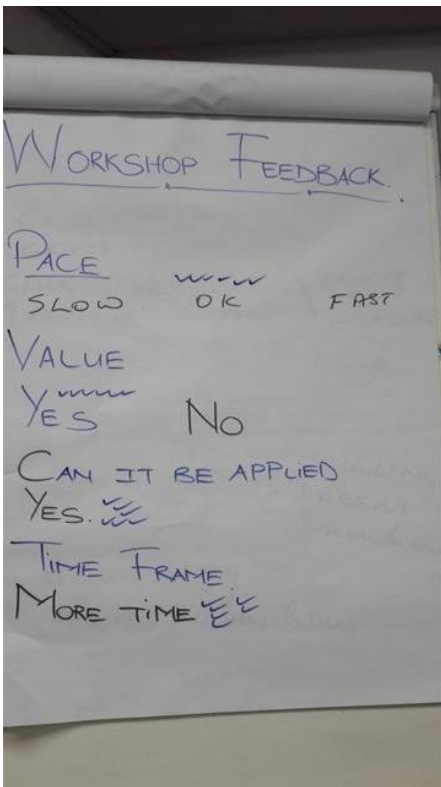 WORKSHOP FEEDBACK.
PACE
SLOW OK FAST
VALUE
YES NO
CAN IT BE APPLIED
YES.
TIME FRAME
MORE TIME